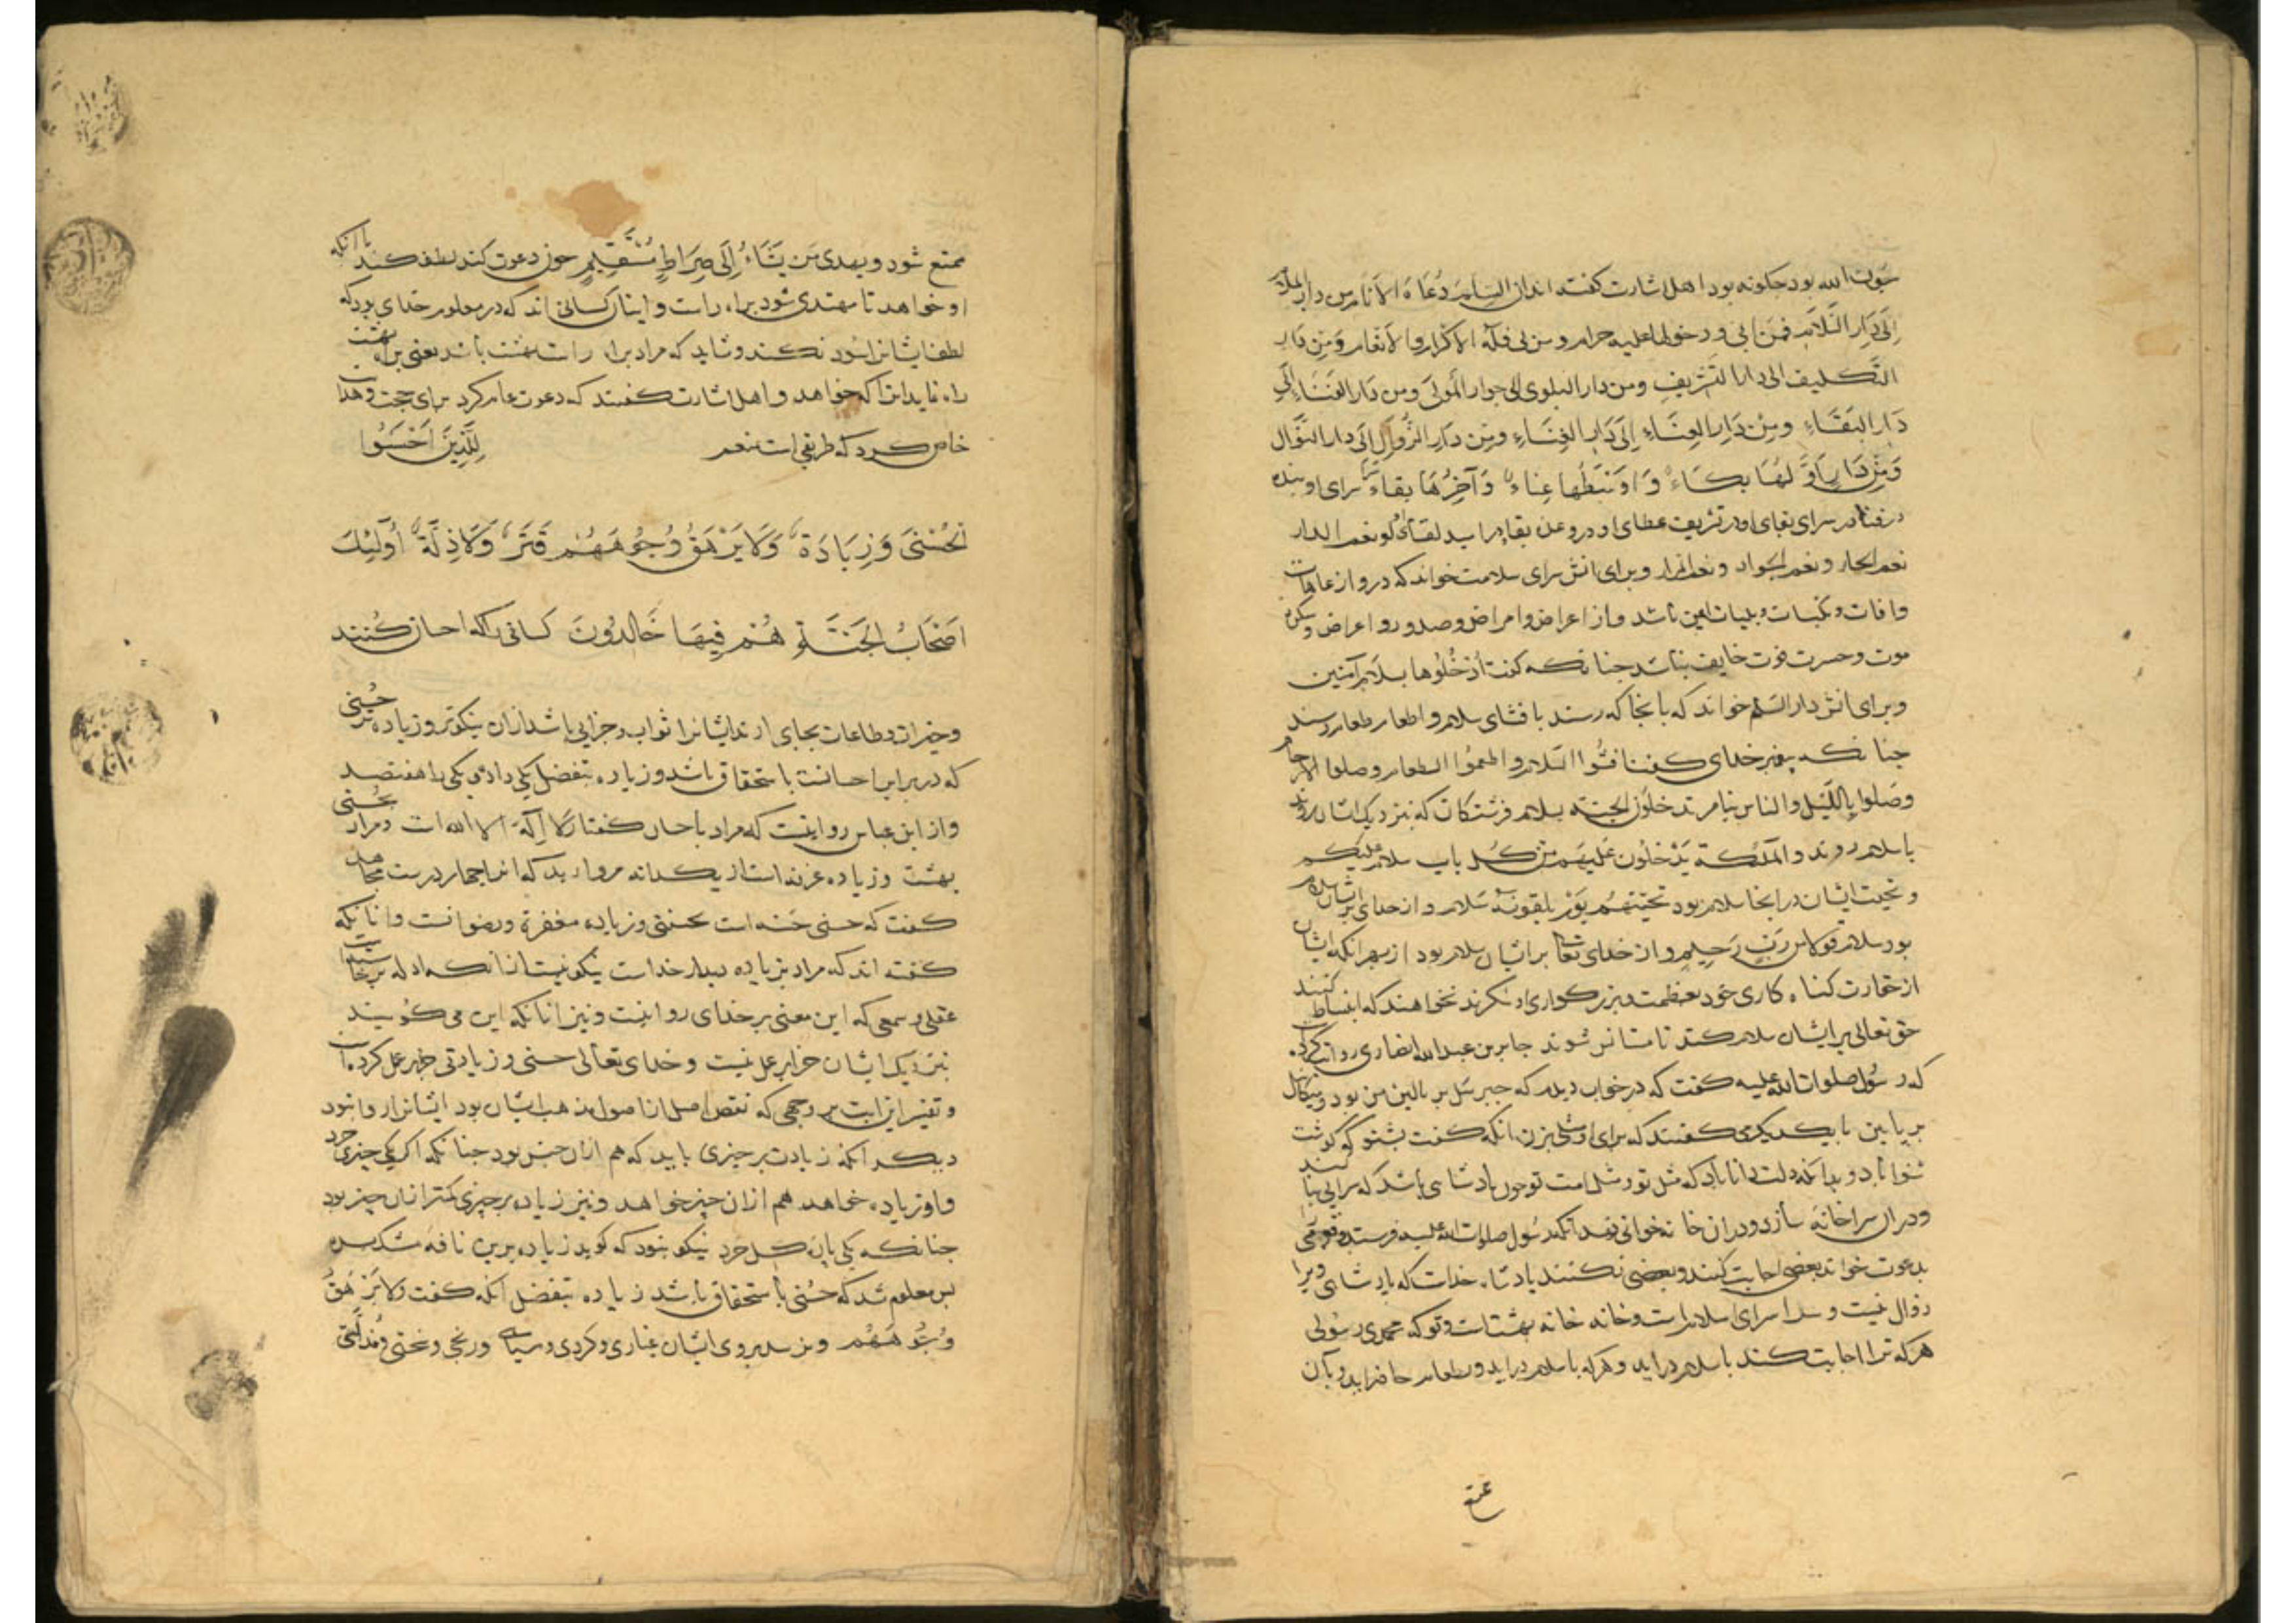 بیوت الله بود چکونه بود اهل اشارت کفته اند ان السلام دعاة الانام من دار الملا
الی دار السلام فمن ابی و دخولها علیه حرام و من لبی فله الاکرام والانعام و من دار
التکلیف الی دار التشریف و من دار البلوی الی جوار المولی و من دار الفناء الی
دار البقاء و من دار العناء الی دار الغناء و من دار الزوال الی دار النوال
و من دار اولها بکاء و اوسطها عناء و آخرها بقاء سرای او بنده
در سرای بقای او در تشریف عطای او در وعن نعم الدار
نعم الجار و نعم الجواد و نعم و برای انش سرای سلامت خواند که درو از عاهات
و افات و نکبات و بلیات ایمن باشد و از اعراض و امراض و صدور و اعراض و
موت و حسرت فوت خایف نباشد چنانکه کفت ادخلوها بسلام آمنین
و برای انش دار السلام خواند که بانجا که رسند بافشای سلام و اطعام طعام رسند
چنانکه پیغمبر خدای کفت افشوا السلام و اطعموا الطعام و صلوا الارحام
و صلوا باللیل والناس نیام تدخلون الجنة بسلام فرشتکان که بنزدیک ایشان روند
با سلام روند والملئکة یدخلون علیهم من کل باب سلام علیکم
و تحیت ایشان در انجا سلام بود تحیتهم یوم یلقونه سلام و از خدای بر ایشان سلام
بود سلام قولا من رب رحیم و از خدای تعا بر ایشان سلام بود از بهر انکه ایشان
از حقارت کناه کاری خود بعظمت و بزرکواری او نکرند نخواهند که انبساط کنند
حق تعالی بر ایشان سلام کند تا شوند جابر بن عبدالله انصاری روایت کرد
که رسول صلوات الله علیه کفت که در خواب دیدم که جبرئیل بر بالین من بود و میکائیل
بر پایین با یکدیکر می کفتند که برای او مثلی بزن انکه کفت بشنو که کوشت
شنوا باد و بدانکه دلت دانا باد که مثل تو و مثل امت تو چون پادشاهی باشد که سرایی بنا کند
و در ان سرا خانه سازد و در ان خانه خوانی نهد انکه رسول صلوات الله علیه فرستد و قومی را
بدعوت خواند بعضی اجابت کنند و بعضی نکنند پادشاه خداست که پادشاهی ویرا
زوال نیست و سرا سرای سلامت است و خانه خانه بهشتست و تو که محمدی رسولی
هر که ترا اجابت کند باسلام دراید و هر که باسلام دراید و بطعام حاضر اید و بآن
ممتع شود و یهدی من یشاء الی صراط مستقیم چون دعوت کند لطف کند با انکه
او خواهد تا مهتدی شود براه راست و اینان کسانی اند که در معلوم خدای بود که
لطف ایشانرا سود نکند و شاید که مراد براه راست بهشت باشد یعنی براه بهشت
راه نماید انرا که خواهد و اهل اشارت کفتند که دعوت عام کرد برای حجت و هدایت
خاص کرد که طریقی است للذین احسنوا
الحسنی و زیادة ولا یرهق وجوههم قتر ولا ذلة اولئک
اصحاب الجنة هم فیها خالدون کسانی را که احسان کنند
و خیرات و طاعات بجای ارند ایشانرا ثواب و جزایی باشد از ان نیکوتر و زیاده تر حسنی
که در برابر احسانست باستحقاق باشد و زیاده بتفضل یکی داده یکی را هفتصد
و از ابن عباس روایتست که مراد باحسان کفتار لا اله الا الله است و مراد بحسنی
بهشت و زیاده غرفه است از یکدانه مروارید که انرا چهار درست مجاهد
کفت که حسنی حسنه است بحسنتی و زیاده مغفرة و رضوانست و انانکه
کفته اند که مراد بزیاده دیدار خداست نیکو نیست از انکه ادله بر خاسته است
عقلی و سمعی که این معنی بر خدای روا نیست و نیز انانکه این می کویند
بنزدیک ایشان جزا بر عمل نیست و خدای تعالی حسنی و زیادتی جزا بر عمل کرده است
و تفسیر این ایت بر وجهی که نقض اصلی از اصول مذهب ایشان بود ایشانرا روا نبود
دیکر انکه زیادت بر چیزی باید که هم از ان جنس بود چنانکه اکر یکی چیزی خرد
و او زیاده خواهد هم از ان چیز خواهد و نیز زیاده بر چیزی کمتر از ان چیز بود
چنانکه یکی پاره کل خرد نیکو نبود که کوید زیاده برین نافه مشک بده
پس معلوم شد که حسنی باستحقاق باشد زیاده بتفضل انکه کفت ولا یرهق
وجوههم و نرسد بروی ایشان غباری و کردی و سیاهی و رنجی و محنتی و مذلتی